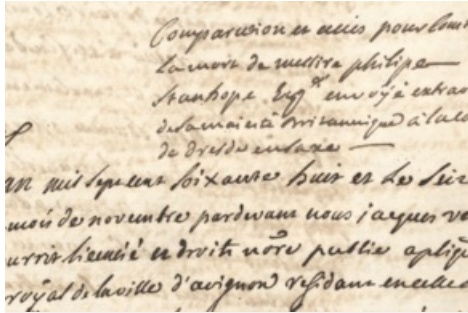 Comparution et acies pour cons
la mort de messire philipe
Stanhope Esqre envoyé extrao
de sa maiesté Britannique à la co
de dresde en saxe
an mil sept cent soixante huit et Le seiz
mois de novembre pardevant nous jacques ve
licentié es droits nore public
royal de la ville d'avignon residant en celle